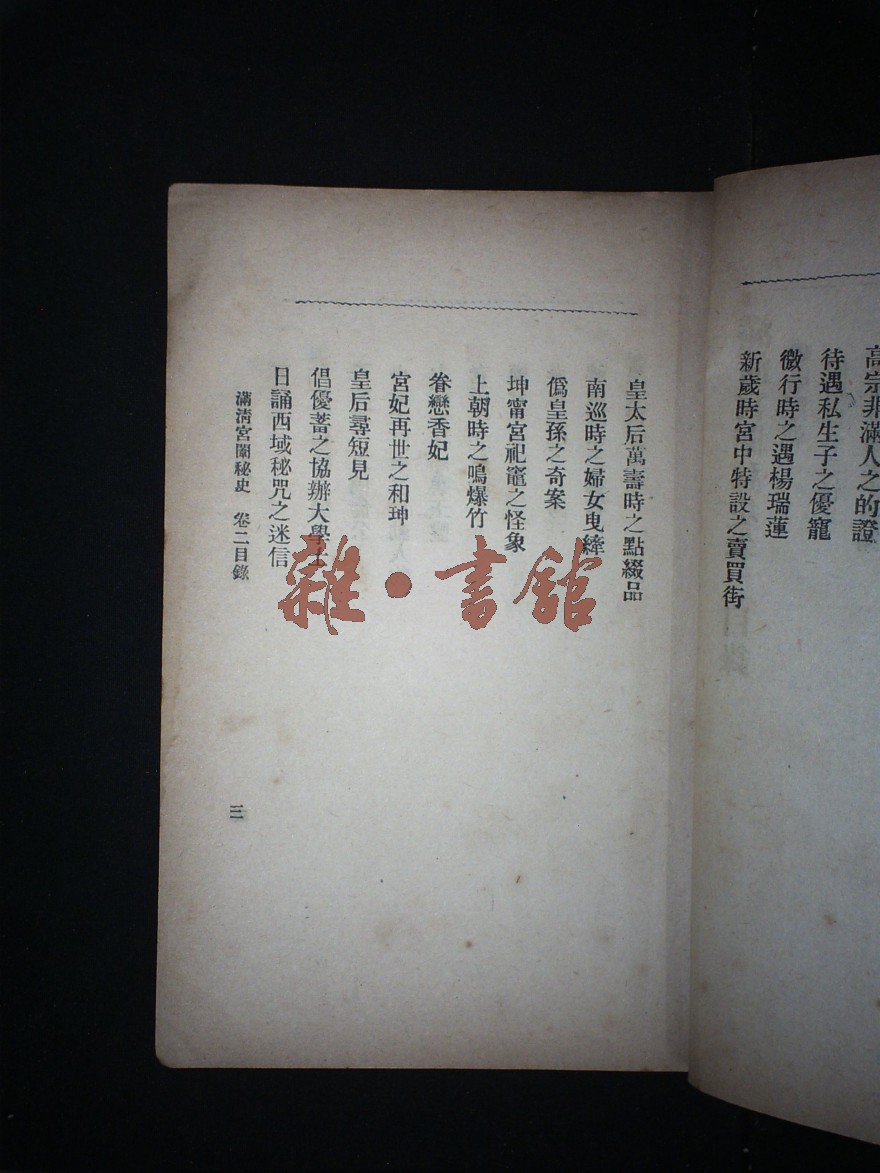 高宗非滿人之的證
待遇私生子之優寵
微行時之遇楊瑞蓮
新歲時宮中特設之賣買街
皇太后萬壽時之點綴品
南巡時之婦女曳縴
僞皇孫之奇案
坤甯宮祀竈之怪象
上朝時之鳴爆竹
眷戀香妃
宮妃再世之和珅
皇后尋短見
倡優蓄之協辦大學士
日誦西域秘咒之迷信
滿淸宮闈秘史 卷二目錄
三
雜·書館